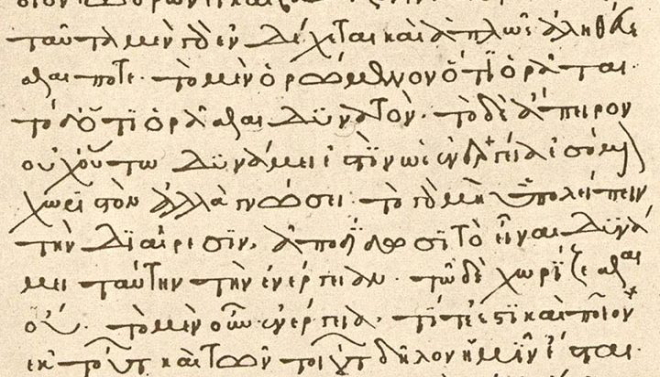 ταῦτα μὲν γὰρ ἐνδέχεται καὶ ἁπλῶς ἀληθεύε
σθαι ποτε· τὸ μὲν ὁρώμενον ὅτι ὁρᾶται·
τὸ δ' ὅτι ὁρᾶσθαι δυνατόν· τὸ δὲ ἄπειρον
οὐχ οὕτω δυνάμει ἐστὶν ὡς ἐνεργεία ἐσόμενον
χωριστὸν ἀλλὰ γνώσει· τὸ γὰρ μὴ ὑπολείπειν
τὴν διαίρεσιν, ἀποδίδωσι τὸ εἶναι δυνά
μει ταύτην τὴν ἐνέργειαν· τῶ δὲ χωρίζεσθαι
οὔ· τὸ μὲν οὖν ἐνεργεία· τί τέ ἐστι καὶ ποῖον
ἐκ τούτων καὶ τῶν τοιούτων δῆλον ἡμῖν ἔσται·